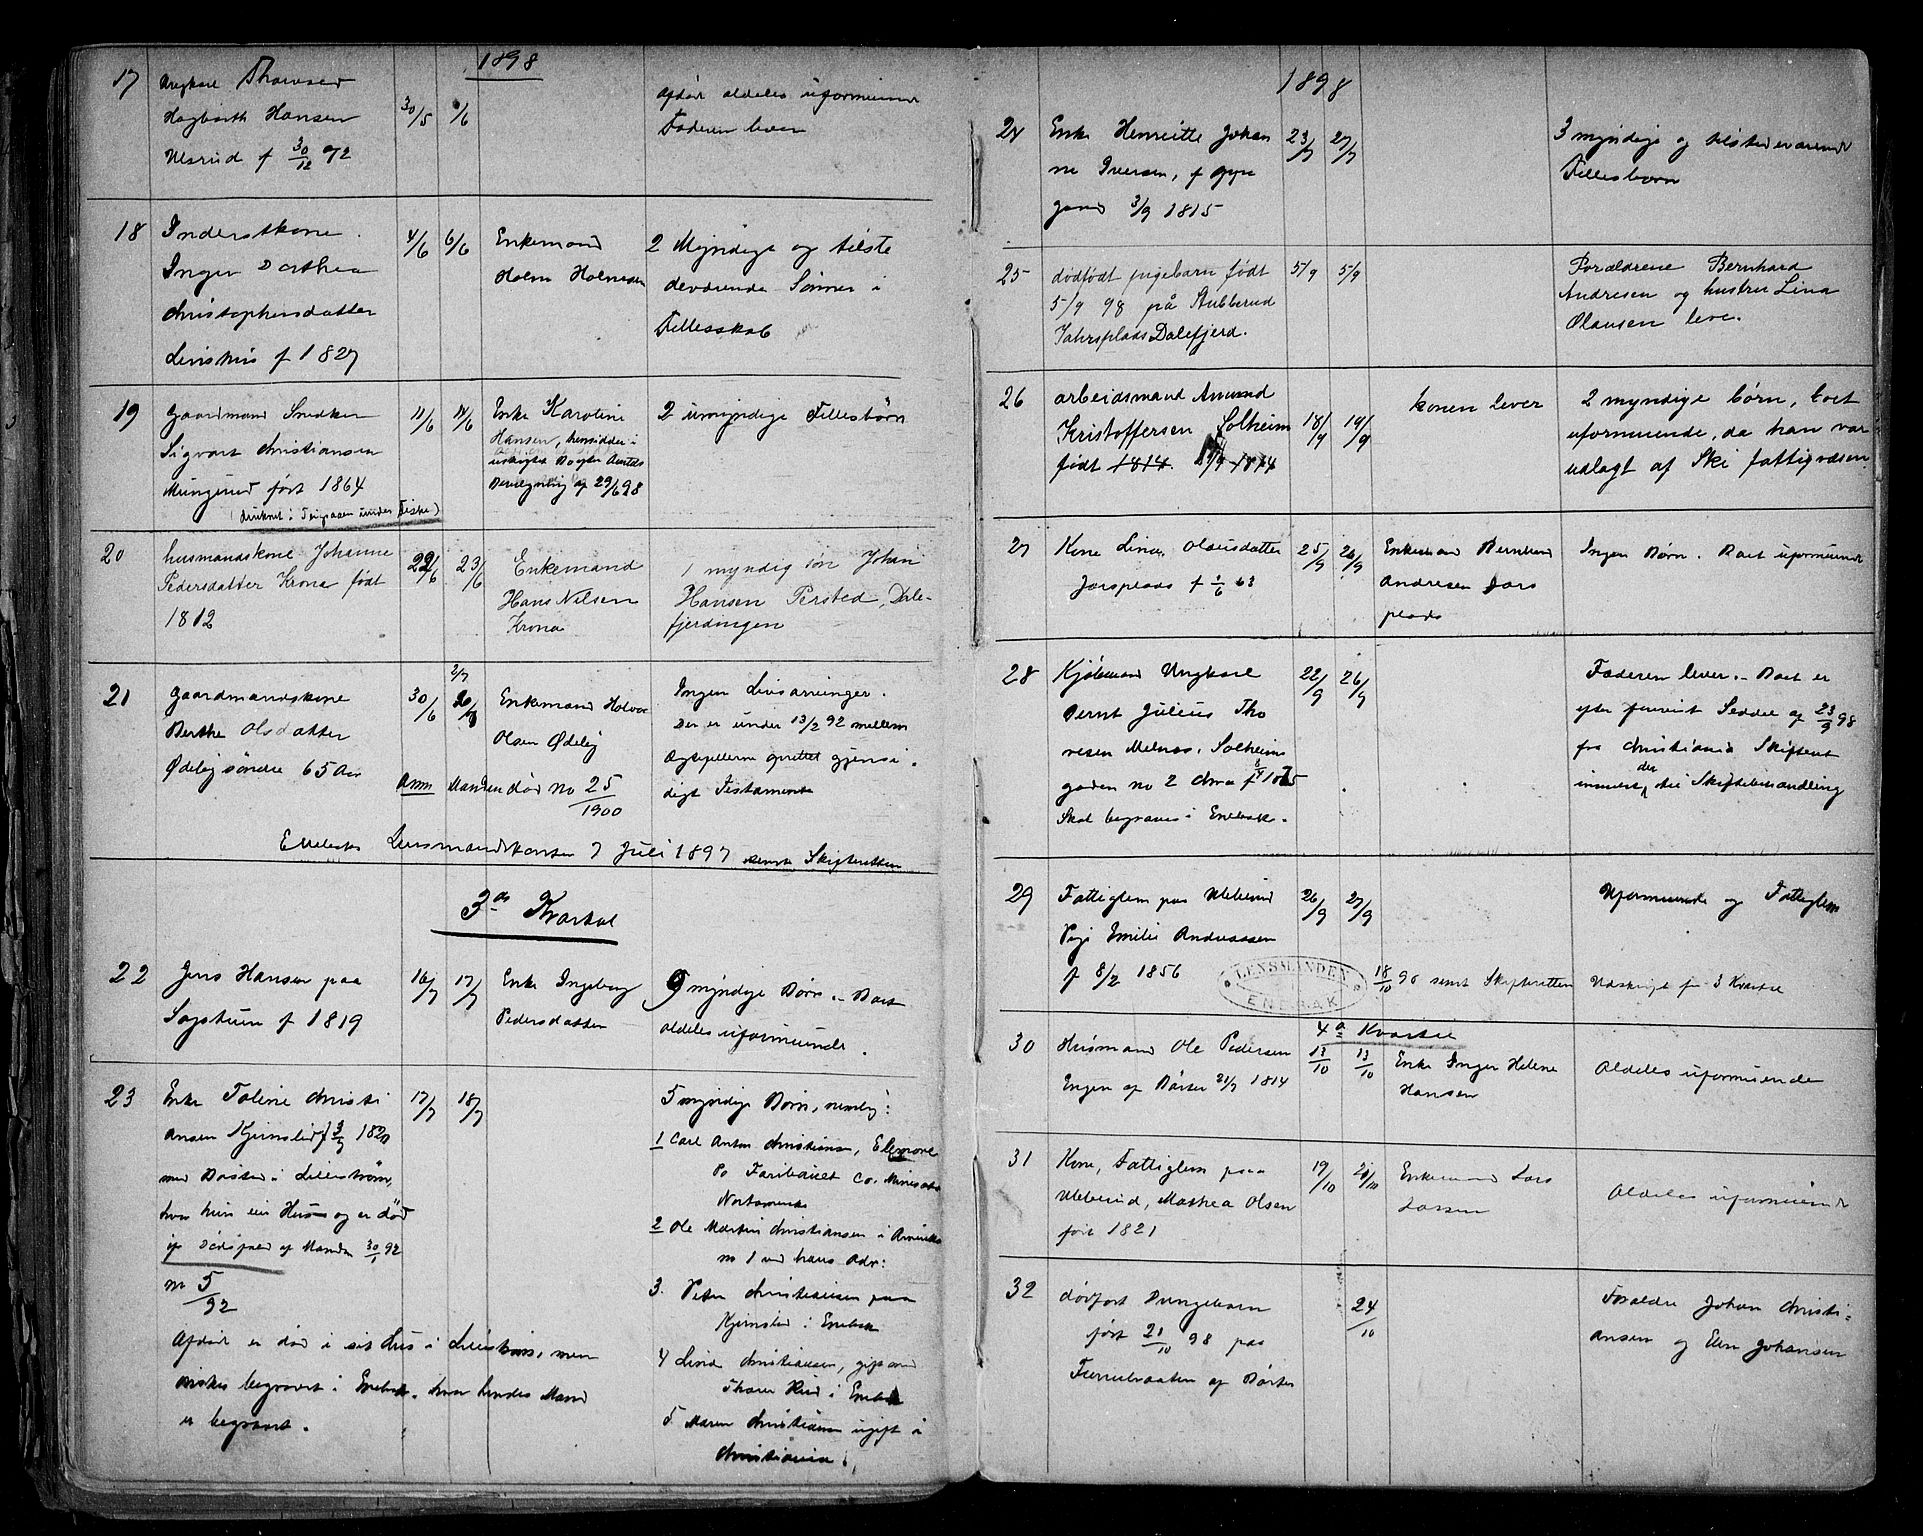 1898
17 Ungkarl Thorvald
Hagbarth Hansen
Ulsrud f 30/12 72
30/5 1/6
Afdøde aldeles uformuende
Faderen lever
18 Inderstkone
Inger Dorthea
Christophersdatter
f 1827
4/6 6/6
Enkemand
Holm Holmesen
2 Myndige og tilste
deværende Sønner i
Fællesskab
19 Gaardmand Snedker
Sigvart Christiansen
Mungerud født 1864
(druknet i under Fiske)
11/6 11/6
Enke Karoline
Hansen, hensidder i
uskiftet Bo efter Amtets
Bevilgning af 29/6 98
2 umyndige Fællesbørn
20 husmandskone Johanne
Pedersdatter Krona født
1812
22/6 23/6
Enkemand
Hans Nilsen
Krona
1 myndig søn Johan
Hansen Persted, Dale-
fjerdingen
21 Gaardmandskone
Berthe Olsdatter
Ødeby søndre 65 Aar
30/6 2/7
Enkemand Halvor
Olsen Ødeby
Anm Manden død No 25/1900
Ingen Livsarvinger.
Der er under 13/2 92 mellem
Ægtefællerne oprettet gjensi-
digt Testamente
Enebaks Lensmandskontor 7 Juli 1897 sendt Skifteretten
3die Kvartal
22 Jens Hansen paa
f 1819
16/7 17/7
Enke Ingeborg
Pedersdatter
9 myndige Børn. - Boet
aldeles uformuende.
23 Enke Toline Christi
ansen Kjernslid f 3/9 1820
med Bosted i Lillestrøm,
hvor hun eier Hus og er død
jf Dødsfald af Manden 30/1 92
No 5/92
17/7 18/7
Afdøde er død i sit Hus i Lillestrøm, men
ønskes begravet i Enebak, hvor hendes Mand
er begravet.
5 myndige Børn, nemlig:
1 Carl Anton Christiansen,
Po Faribault Co. Minesota
Nortamerika
2 Ole Martin Christiansen i Amerika
No 1 ved hans Adr:
3. Peter Christiansen paa
Kjernslid i Enebak
4 Lovise Christiansen, gift med
Thorer Ried i Enebak
5 Maren Christiansen ugift i
Christiania.
1898
24 Enke Henriette Johan
ne Iversen, f
gaard 3/9 1815
23/7 27/7
3 myndige og tilstedeværende
Fællesbørn
25 dødfødt pigebarn født
5/9 98 på Stubberud
Jahrsplads Dalefjerd.
5/9 5/9
Forældrene Bernhard
Andresen og hustru Lina
Olausen lever.
26 arbeidsmand Amund
Kristoffersen Solheim
født 1814. 1814
18/9 19/9
konen lever
2 myndige børn, boet
uformuende, da han var
udlagt af Ski fattigvæsen
27 Kone Lina Olausdatter
Jarsplads f 1/6 63
25/9 26/9
Enkemand Bernhard
Andresen Jars
plads
Ingen Børn. Boet uformuende
28 Kjøbmand Ungkarl
Bernt Julius Tho
resen Melnæs, Solheims
gaden no 2 Chra f 8/4 1875
Skal begraves i Enebak.
22/9 26/9
Faderen lever. - Boet er
efter forevist Seddel af 23/9 98
fra Christiania Skifteret
der Skiftebehandling
29 Fattiglem paa Ulleberud
Pige Emilie Andreassen
f 8/2 1856
26/9 27/9
Uformuende og Fattiglem
LENSMANDEN
ENEBAK
18/10 98 sendt Skifteretten Udskrift for 3 Kvartal
4de Kvartal
30 Husmand Ole Pedersen
Engen af Børter 21/7 1814
13/10 13/10
Enke Inger Helene
Hansen
Aldeles uformuende
31 Kone, Fattiglem paa
Ulleberud, Mathea Olsen
født 1821
19/10 20/10
Enkemand Lars
Larsen
Aldeles uformuende
32 dødfødt Drengebarn
født 21/10 98 paa
af Børter
24/10
Forældre Johan Christi-
ansen og Elen Johansen